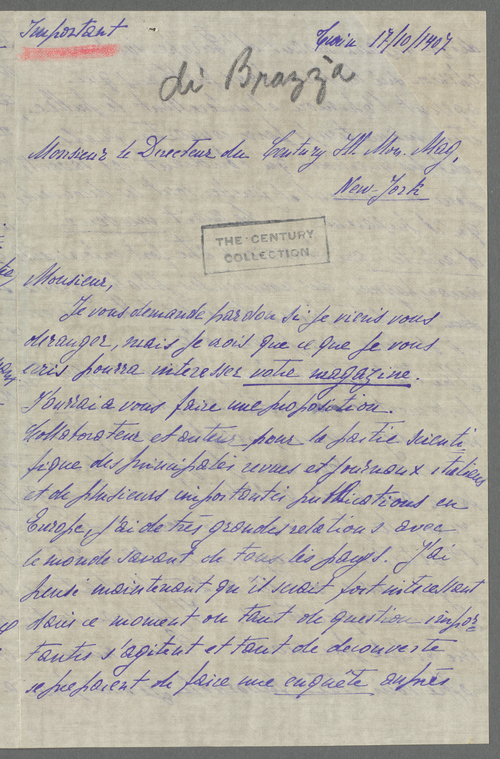 Important
Turin 17/10/1907
di Brazzà
Monsieur le Directeur du Century Ill. Mon. Mag.
New-York
THE CENTURY
COLLECTION
Monsieur,
Je vous demande pardon si je viens vous
deranger, mais je crois que ce que je vous
ecris pourra interesser votre magazine.
J'aurai a vous faire une proposition.
Collaborateur et auteur pour la partie scienti-
fique des principales revues et journaux italiens
et de plusieurs importantes publications en
Europe, j'ai de très grandes relations avec
le monde savant de tous les pays. J'ai
pensé maintenant qu'il serait fort intéressant
dans ce moment ou tant de question impor-
tantes s'agitent et tant de decouverte
se preparent de faire une enquête auprès